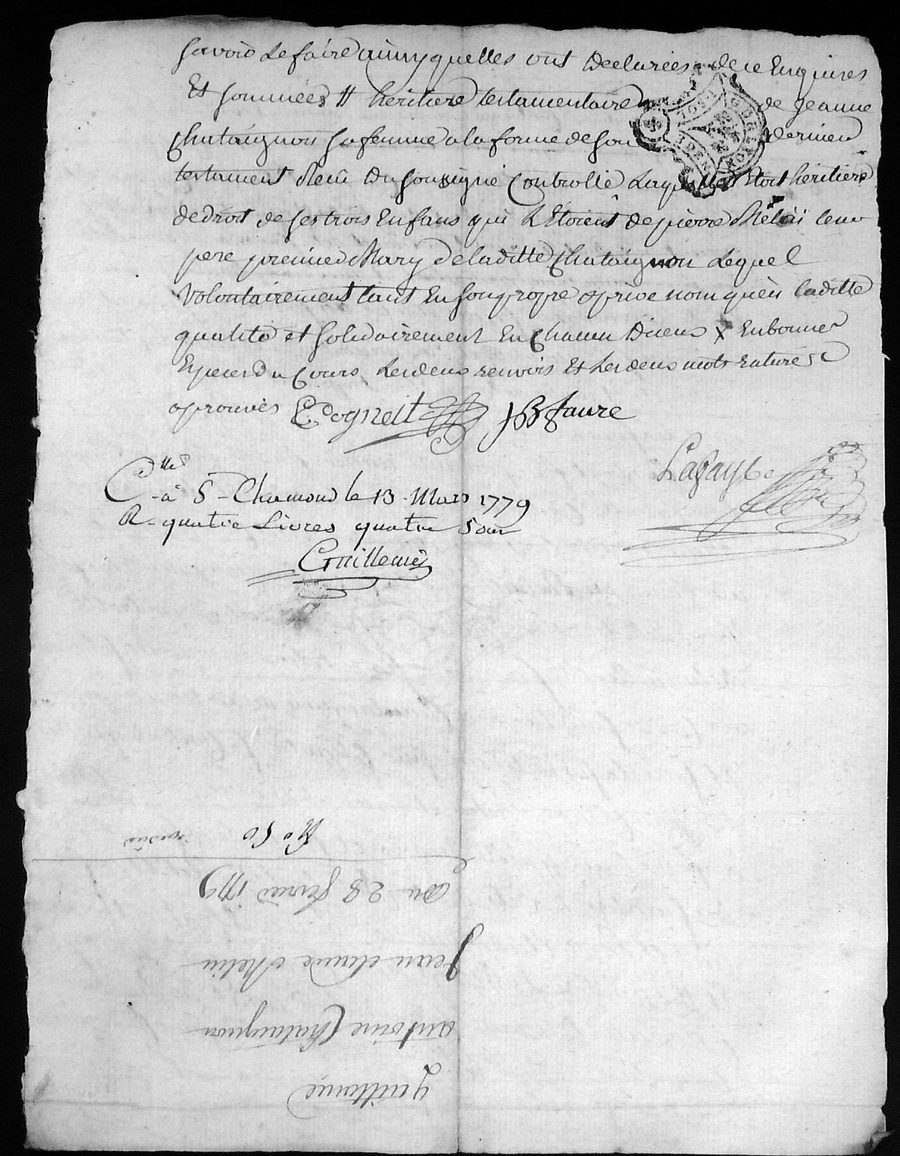 savoir le faire ainsy quelles ont declarées de ce Enquises
Et sommées # héritiere testamentaire de jeanne
Chataignon sa femme a la forme de son dernier
testament Reçu Du soussigné Controllé Laquelle Etoit héritiere
de droit de ses trois Enfans qui Etoient de pierre Melin leur
pere premier Mary de laditte Chataignon Lequel
Volontairement tant En son propre & privé nom qu'en laditte
qualité et solidairement En Chacun Diceux x En bonnes
Especes du Cours Les deux renvois Et les deux mots raturés
aprouvés JB faure
C lle
à St Chamond le 13 Mars 1779
R quatre Livres quatre Sous
Guillemin
No 50
Du 28 fevrier 1779
Jean claude Melin
antoine Chataignon
quittance